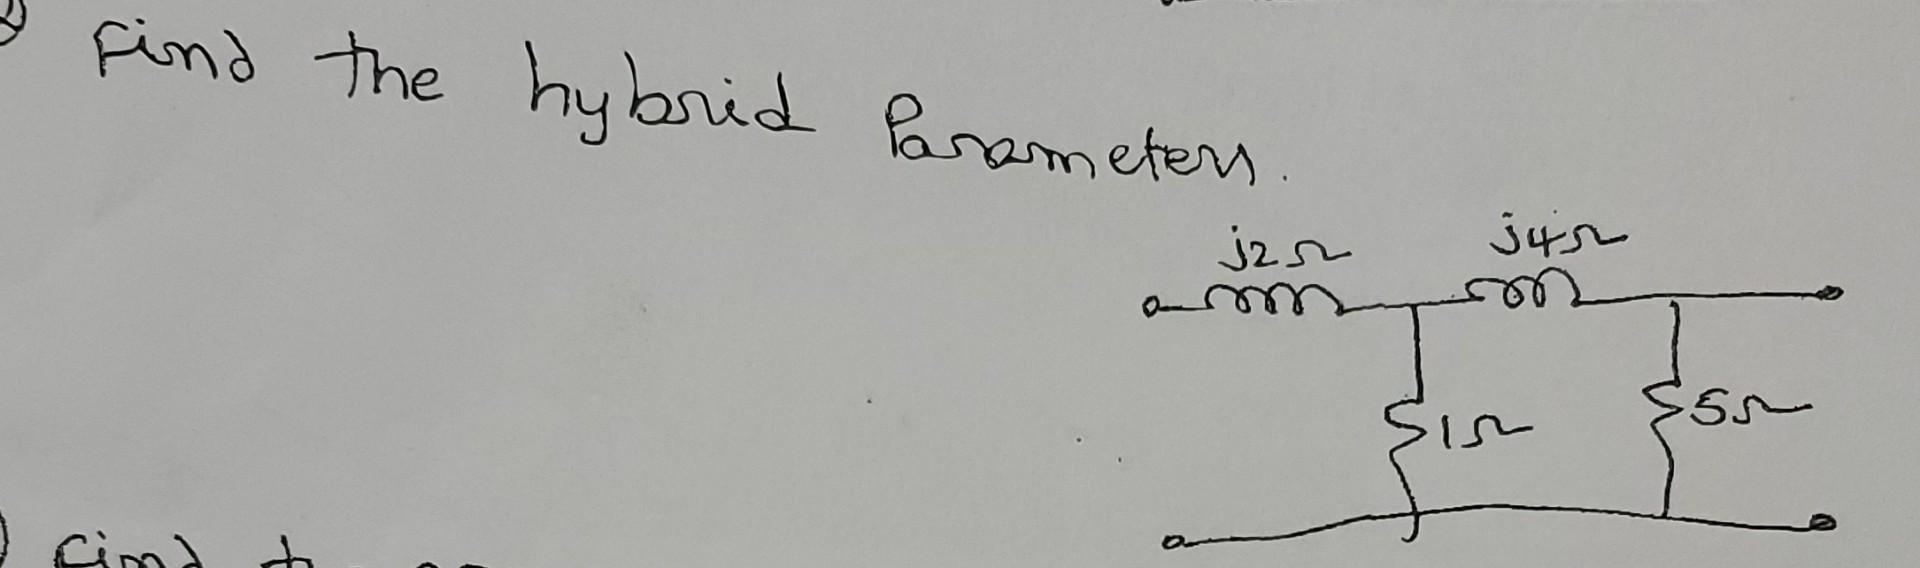 Find the hybrid Parameters.
j2Ω j4Ω
1Ω 5Ω
Find